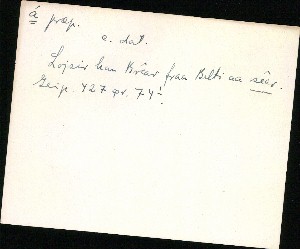 á præp.
c. dat.
Lojsir han Brear fraa Belti aa seer.
Geip. 427 pr. 74!